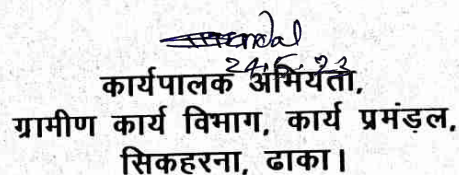 24.6.23
कार्यपालक अभियंता,
ग्रामीण कार्य विभाग, कार्य प्रमंडल,
सिकहरना, ढाका।